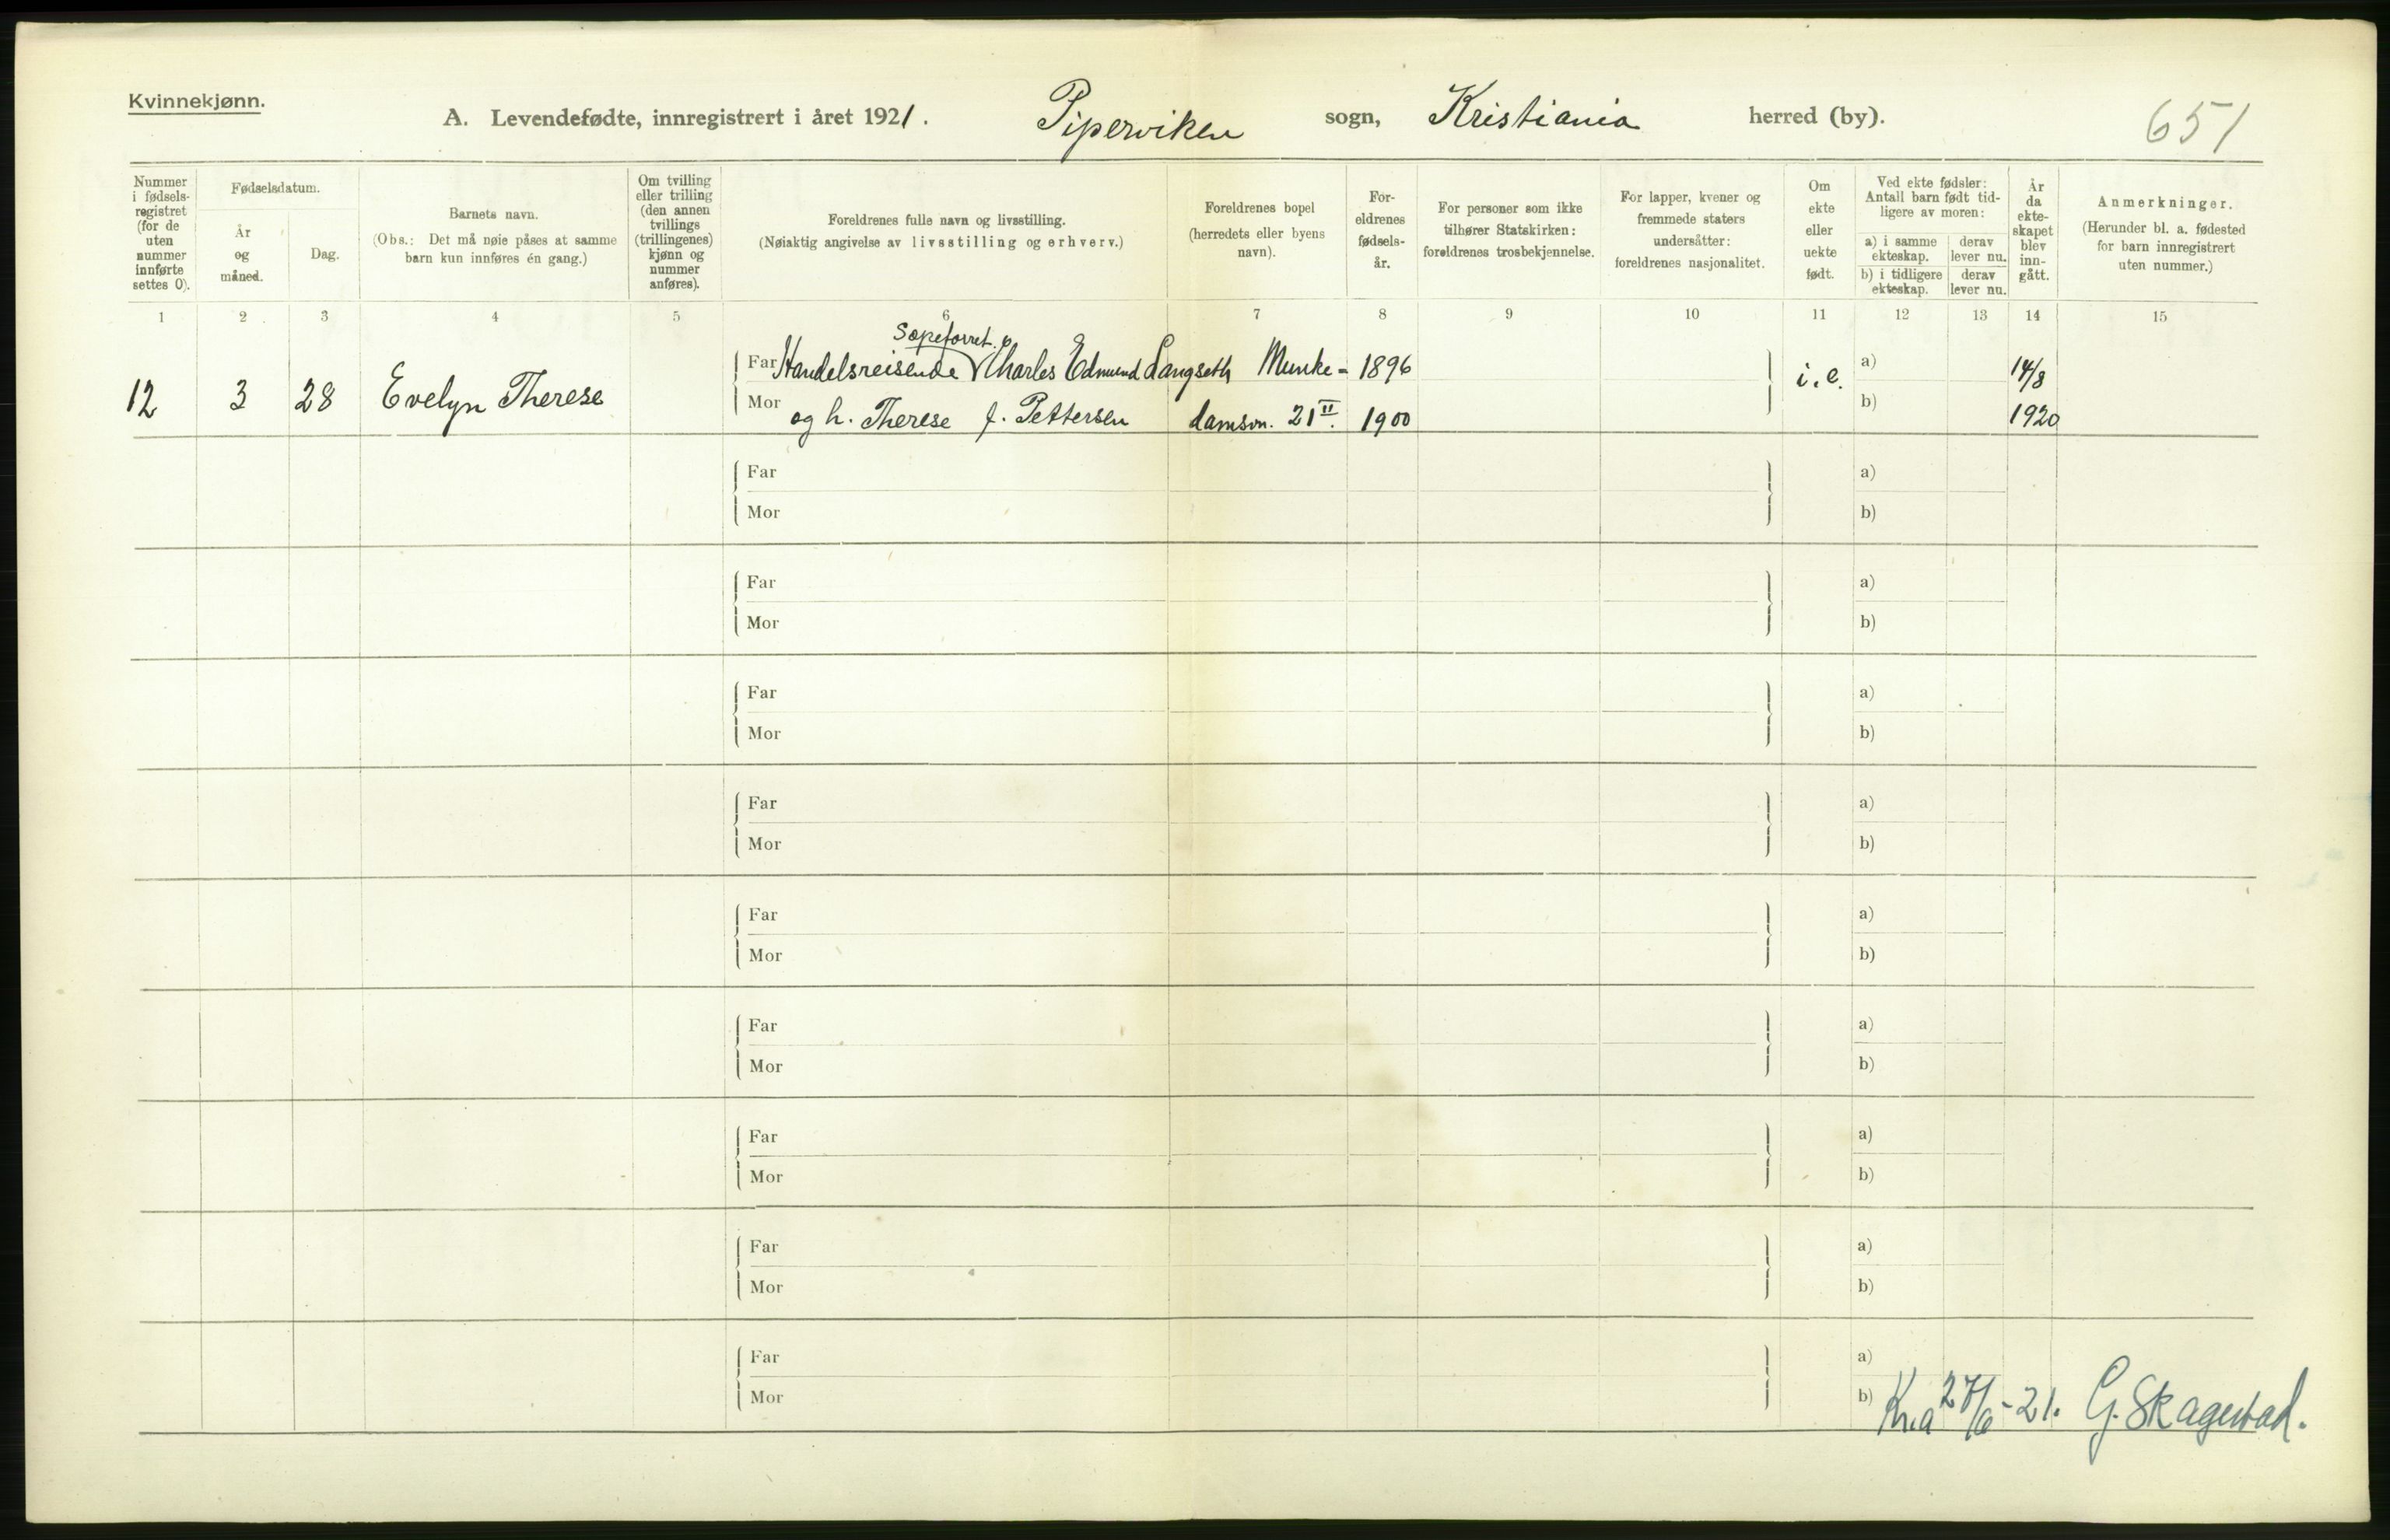 Kvinnekjønn.
A. Levendefødte, innregistrert i året 1921. Piperviken sogn, Kristiania herred (by). 651
Nummer i fødselsregistret (for de uten nummer innførte settes 0).
Fødselsdatum.
År og måned.
Dag.
Barnets navn.
(Obs.: Det må nøie påses at samme barn kun innføres én gang.)
Om tvilling eller trilling (den annen tvillings (trillingenes) kjønn og nummer anføres).
Foreldrenes fulle navn og livsstilling.
(Nøiaktig angivelse av livsstilling og erhverv.)
Foreldrenes bopel (herredets eller byens navn).
Foreldrenes fødselsår.
For personer som ikke tilhører Statskirken: foreldrenes trosbekjennelse.
For lapper, kvener og fremmede staters undersåtter: foreldrenes nasjonalitet.
Om ekte eller uekte født.
Ved ekte fødsler: Antall barn født tidligere av moren:
a) i samme ekteskap.
derav lever nu.
b) i tidligere ekteskap.
derav lever nu.
År da ekteskapet blev inngått.
Anmerkninger.
(Herunder bl. a. fødested for barn innregistrert uten nummer.)
1 2 3 4 5 6 7 8 9 10 11 12 13 14 15
Sæpeforret.
Far Handelsreisende Charles Edmund Langseth Munke- 1896 a) 14/8
12 3 28 Evelyn Therese i.e.
Mor og h. Therese f. Pettersen damsvn. 21 II. 1900 b) 1920
Far a)
Mor b)
Far a)
Mor b)
Far a)
Mor b)
Far a)
Mor b)
Far a)
Mor b)
Far a)
Mor b)
Far a)
Mor b)
Far a)
Mor b)
Far a)
Mor b)
Kr.a 27/6-21. G. Skagestad.